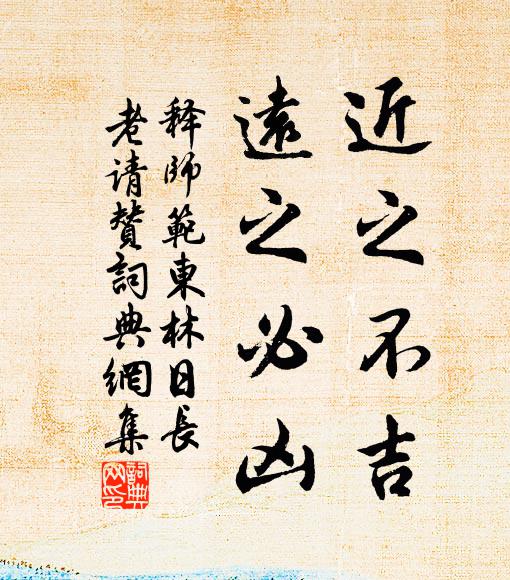 近之不吉
遠之必凶
释師範東林日長
老請贊詞典網集
詞典网印